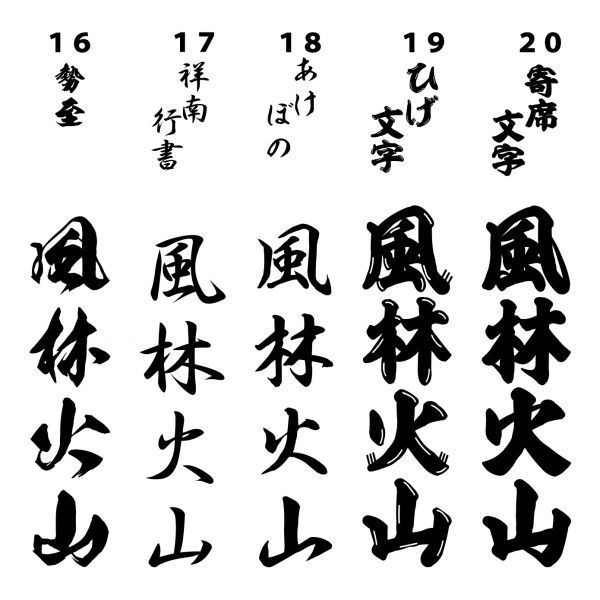 16 17 18 19 20
勢至
祥南
行書
あけ
ぼの
ひげ
文字
寄席
文字
風林火山
風林火山
風林火山
風林火山
風林火山